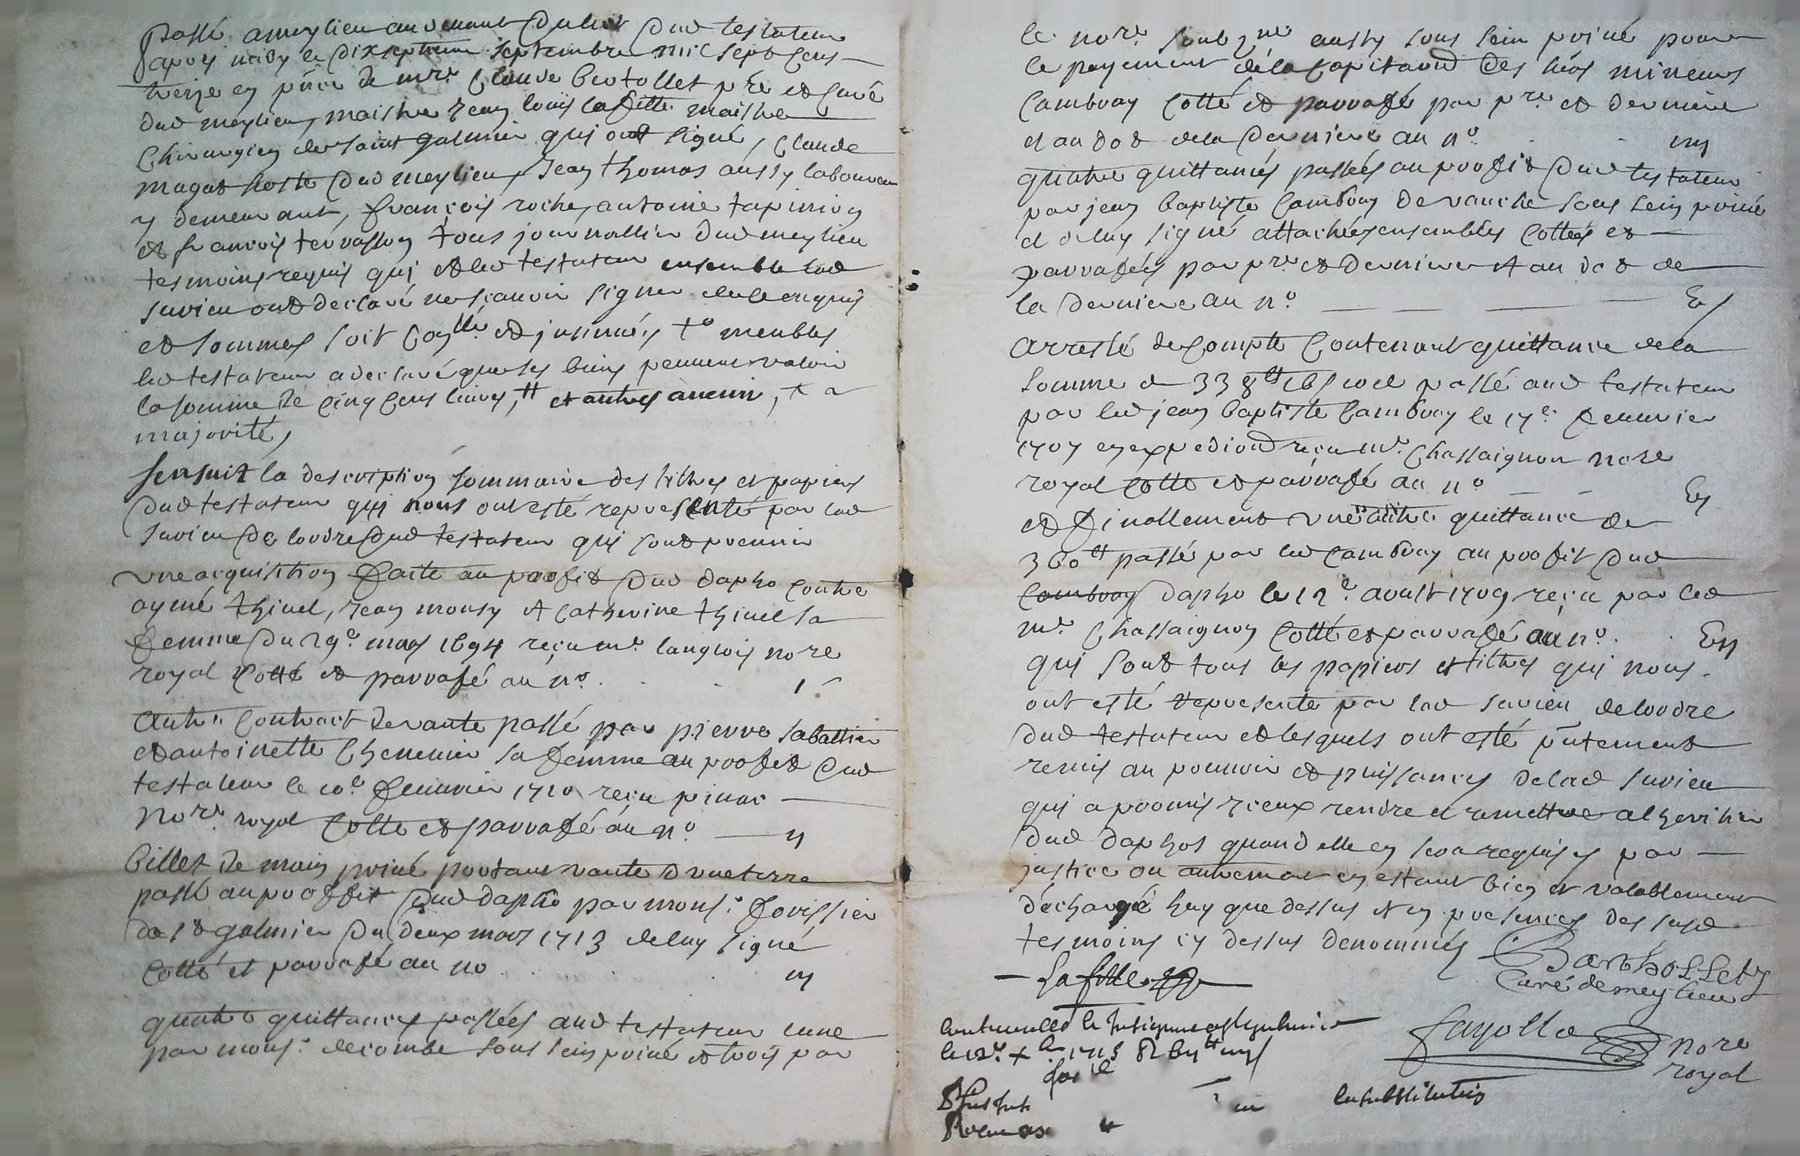 passé a meylieu au devant du lict dud testateur
apres midy le dix septieme septembre mil sept cens
treize en pnce de mre Claude bertollet pre et curé
dud meylieu, maistre Jean louis lafitte maistre
Chirurgien de saint galmier qui ont signé, Claude
magat hoste dud meylieu, Jean thomas aussy laboureur
y demeurant, françois roche, antoine tapinion
et francois tervasson tous journallier dud meylieu
tesmoins requis qui et led testateur ensemble lad
surieu ont declaré ne scavoir signer de ce enquis
et sommes soit conllé et insinué, to meubles
led testateur a declaré que ses biens peuvent valoir
la somme de cinq cens livres, tt et autres a venir, x a
majorité,
sensuit la description sommaire des tiltres et papiers
dud testateur qui nous ont esté representé par lad
surieu de lordre dud testateur qui sont premier
une acquisition faite au proffit dud dapho contre
aymé thinel, Jean mousy et catherine thinel sa
femme du 29e mars 1694 reçu mr langlois nore
royal cotté et parrafé au no. 1
autre contract de vante passé par pierre sabattier
et antoinette Chenevier sa femme au proffit dud
testateur le 10e feuvrier 1710 reçu pinac
nore royal cotté et parrafé au no ıı
billet de main privé portant vante d'une terre
passé au proffit dud dapho par monsr forissier
de st galmier du deux mars 1713 de luy signé
cotté et parrafé au no ııı
quatre quittances passées aud testateur l'une
par monsr decombe sous sein privé et trois par
le nore soubzné aussy sous sein privé pour
le payement de la capitaon des héos mineurs
Cambray cotté et parrafé par pre et derniere
et au dos de la derniere au no. ıııı
quatre quittances passées au proffit dud testateur
par jean baptiste Cambray de vauche sous sein privé
et de luy signé attachées ensembles cottées et
parrafées par pre et derniere et au dos de
la derniere au no 5
Arresté de compte contenant quittance de la
somme de 338tt 16s 10d passé aud testateur
par led jean baptiste Cambray le 17e feuvrier
1707 en expedion reçu mr Chassaignon nore
royal cotté et parrafé au no 6
et finallement une autre quittance de
360tt passé par led Cambray au proffit dud
Cambray dapho le 12e avust 1709 reçu par led
mr Chassaignon cotté et parrafé au no. 7
qui sont tous les papiers et tiltres qui nous
ont esté representé par lad surieu de lordre
dud testateur et lesquels ont esté pntement
remis au pouvoir et puissances de lad surieu
qui a promis iceux rendre et remettre a l'heritier
dud daphos quand elle en sera requise par
justice ou autrement en estant bien et valablement
dechargé hny que dessus et en presences des susd
tesmoins cy dessus denommés
Barthollet
Curé de meylieu
Lafitte
fayolle nore
royal